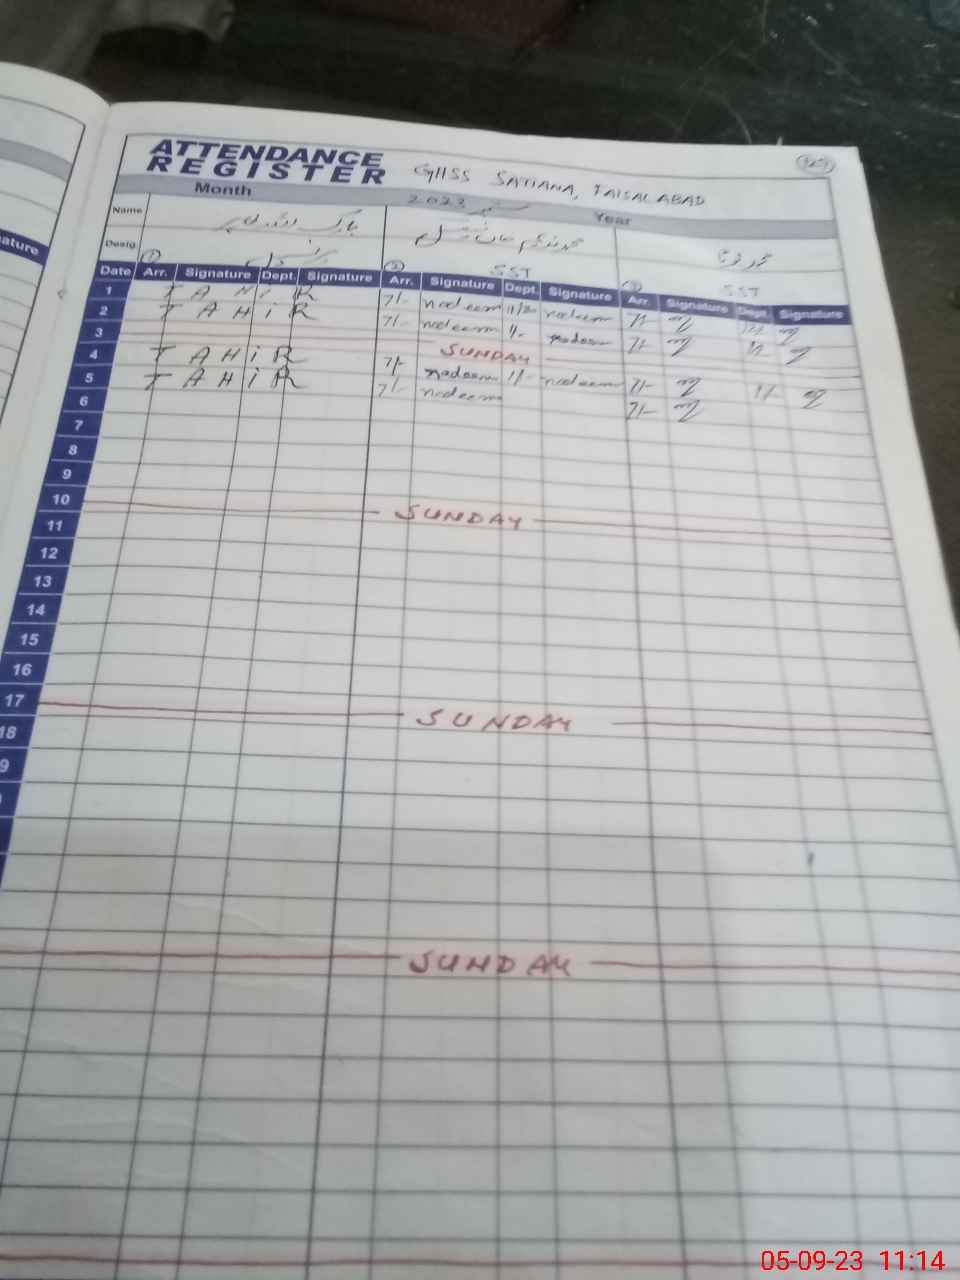 ATTENDANCE
REGISTER
GHSS SATIANA, FAISALABAD
Month ستمبر 2023 Year
ature
Name
Desig.
① ② SST ③ SST
Date Arr. Signature Dept. Signature Arr. Signature Dept. Signature Arr. Signature Dept. Signature
1 TAHiR 7/- nadeem nadeem 7/-
2 TAHiR 7/- nadeem 1/- nadeem 7/-
3 SUNDAY
4 TAHiR 7/- nadeem 1/- nadeem 7/- 1/-
5 TAHiR 7/- nadeem 7/-
6
7
8
9
10 SUNDAY
11
12
13
14
15
16
17 SUNDAY
18
9
SUNDAY
05-09-23 11:14